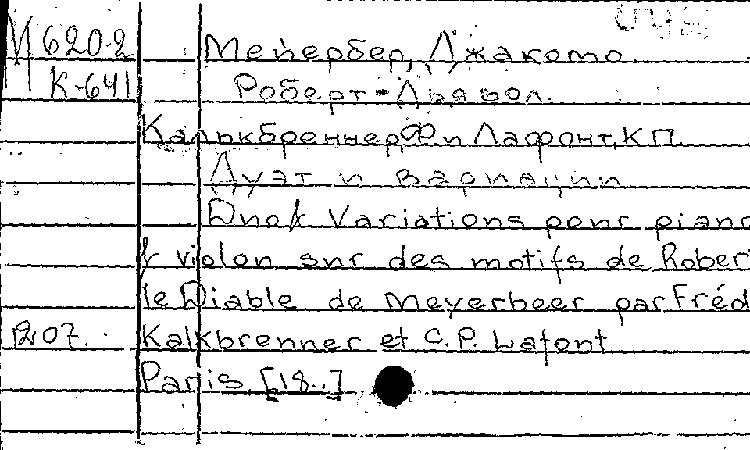 М 620-2 Мейербер, Джакомо.
К-641 Роберт-Дьявол.
Калькбреннер Ф и Лафонт, К П.
Дуэт и вариации
Duo & Variations pour piano
& violon sur des motifs de Rober
le Diable de Meyerbeer par Fréd
Р207. Kalkbrenner et C. P. Lafont
Paris, [18..]